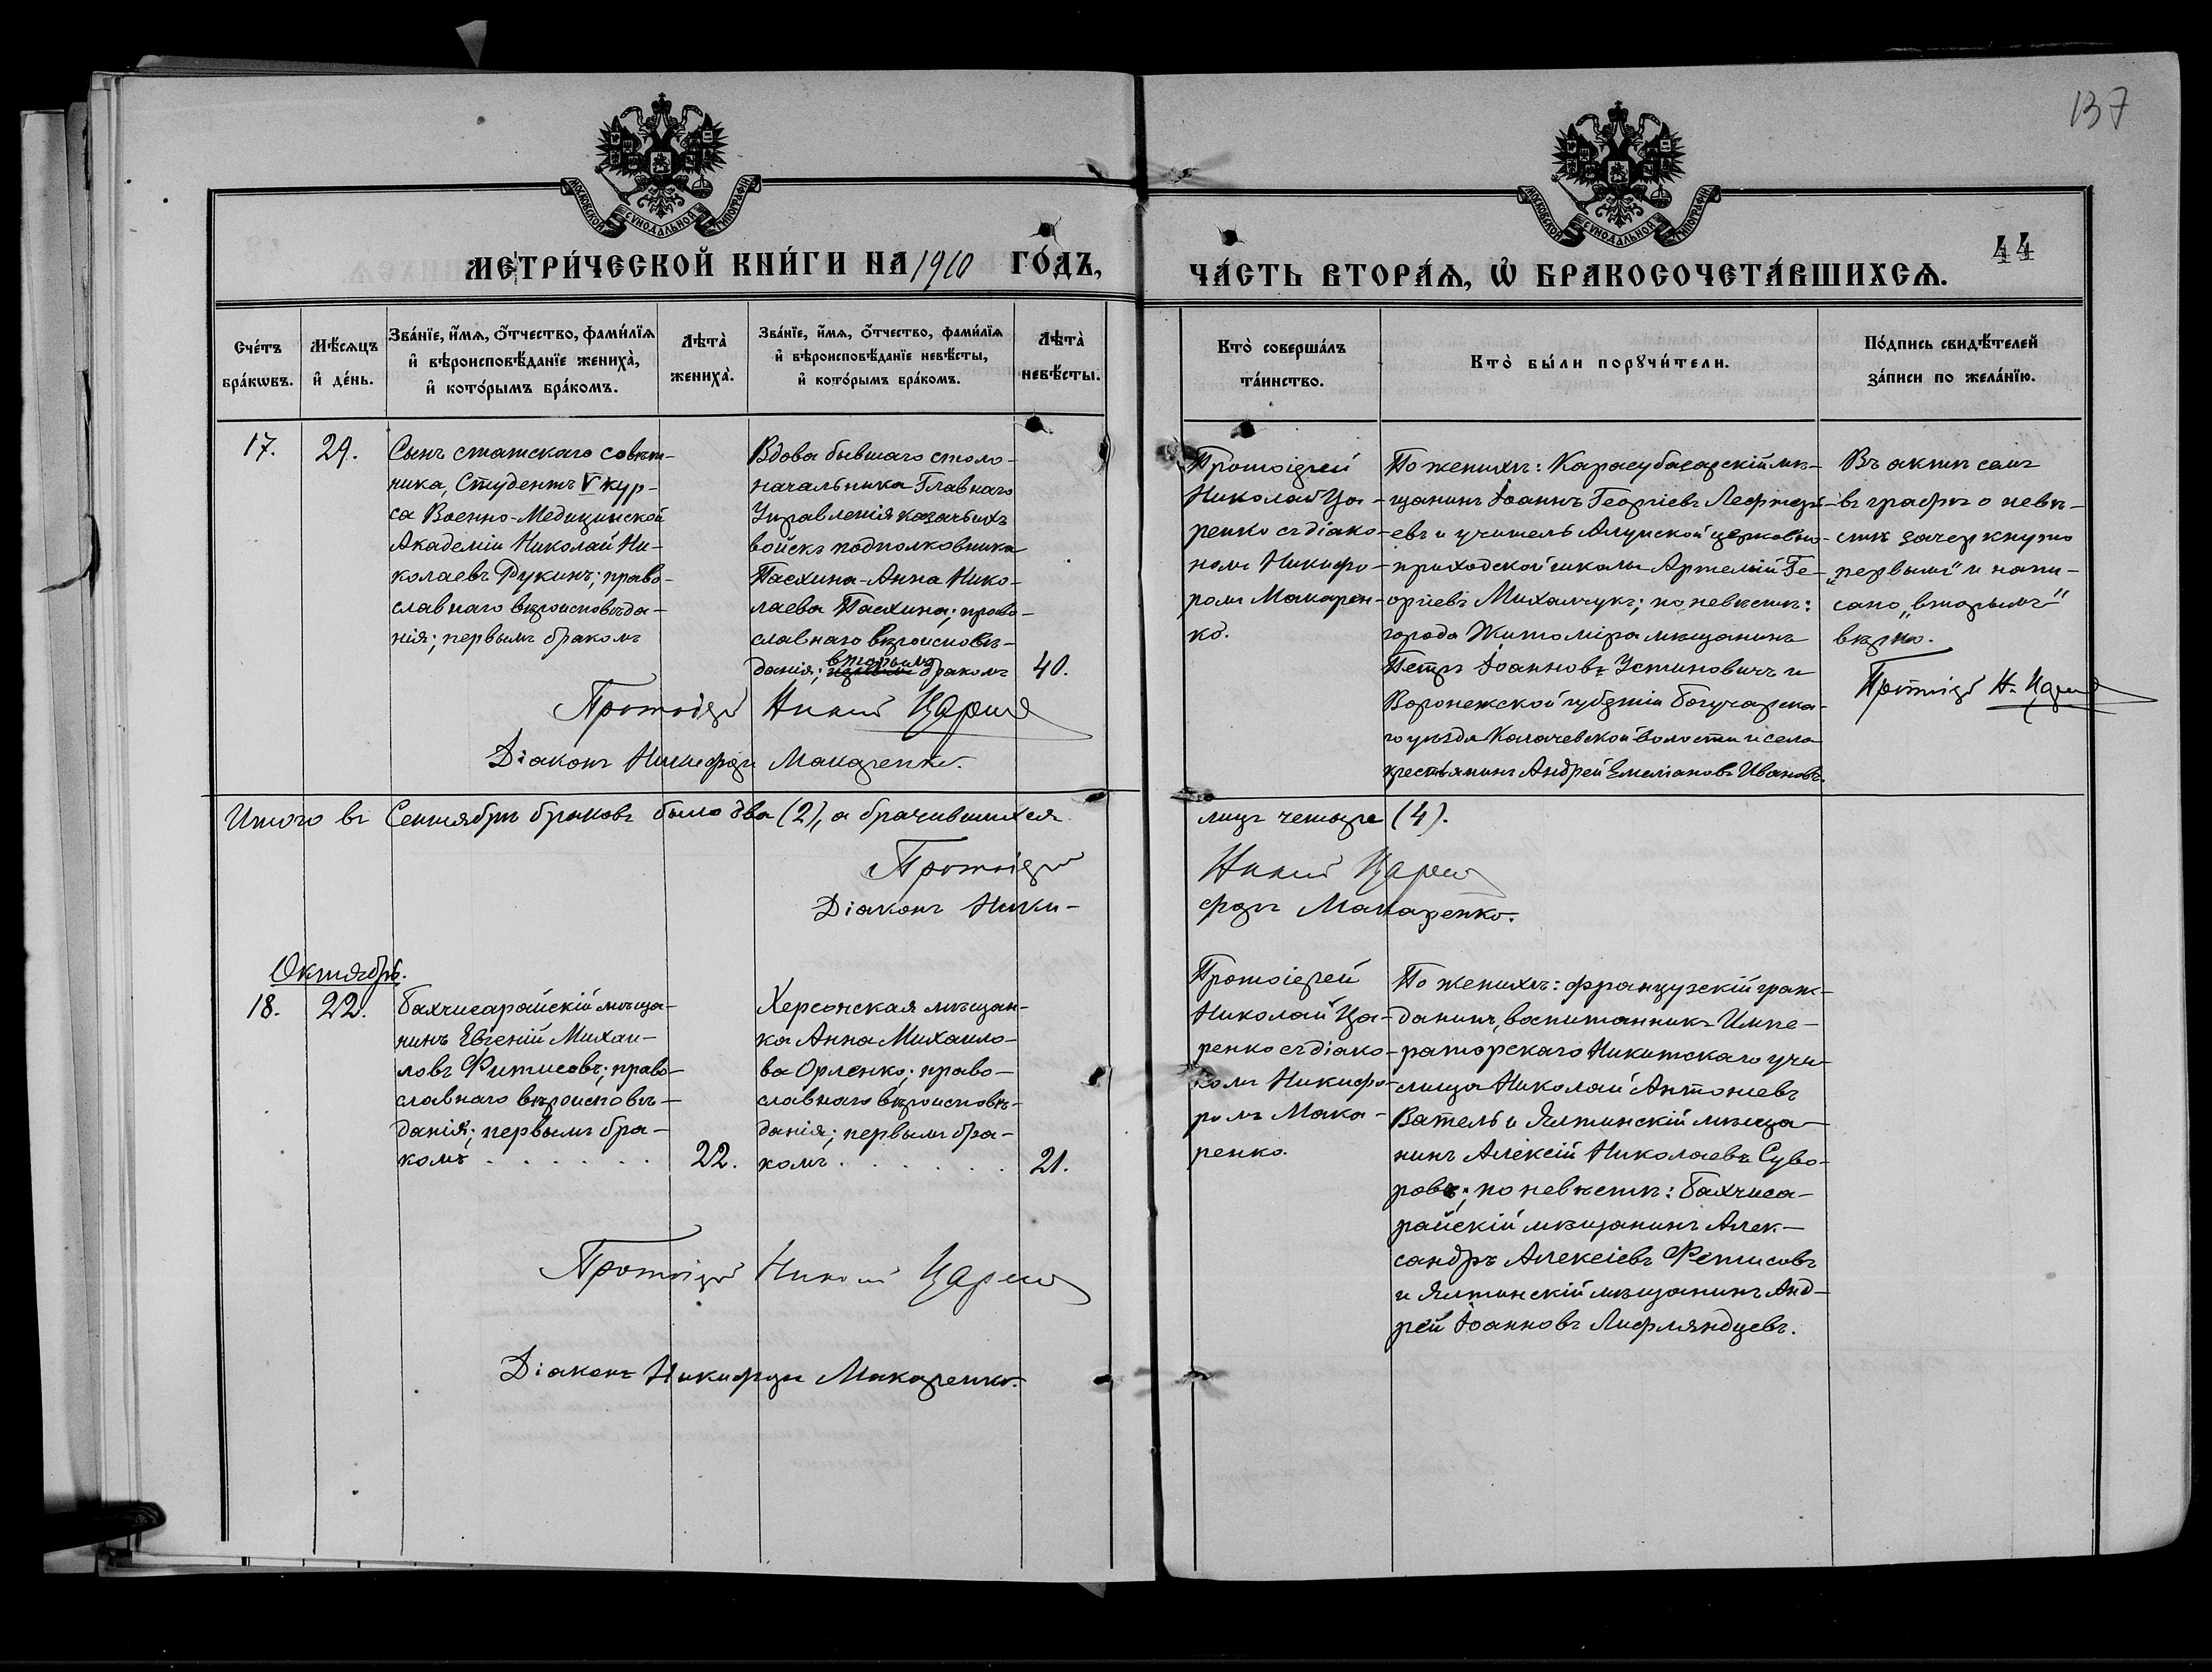 137
44
МОСКОВСКОЙ СѴНОДАЛЬНОЙ ТИПОГРАФІИ
МОСКОВСКОЙ СѴНОДАЛЬНОЙ ТИПОГРАФІИ
МЕТРИ́ЧЕСКОЙ КНИ́ГИ НА 1910 ГО́ДЪ,
ЧА́СТЬ ВТОРА́Ѧ, Ѽ БРАКОСОЧЕТА́ВШИХСѦ.
Сче́тъ
бра́кѡвъ.
Мѣ́сѧцъ
и҆ де́нь.
Зва́нїе, и҆́мѧ, ѻ҆́тчество, фами́лїѧ
и҆ вѣроисповѣ́данїе жениха̀,
и҆ кото́рымъ бра́комъ.
Лѣта̀
жениха̀.
Зва́нїе, и҆́мѧ, ѻ҆́тчество, фами́лїѧ
и҆ вѣроисповѣ́данїе невѣ́сты,
и҆ кото́рымъ бра́комъ.
Лѣта̀
невѣ́сты.
Кто̀ соверша́лъ
та́инство.
Кто̀ бы́ли порꙋчи́тели.
По́дпись свидѣ́телей
за́писи по жела́нїю.
17.
29.
Сынъ статскаго совѣт-
ника, Студентъ V кур-
са Военно-Медицинской
Академіи Николай Ни-
колаевъ Фукинъ; право-
славнаго вѣроисповѣда-
нія; первымъ бракомъ
Вдова бывшаго столо-
начальника Главнаго
Управленія казачьихъ
войскъ подполковника
Пасхина-Анна Нико-
лаева Пасхина; право-
славнаго вѣроисповѣ-
вторымъ
данія; первымъ бракомъ
40.
Протоіерей
Николай Ца-
ренко съ діако-
номъ Никифо-
ромъ Макарен-
ко.
По женихѣ: Карасубазарскій мѣ-
щанинъ Іоаннъ Георгіевъ
евъ и учитель Алупской церковно-
приходской школы Артемій Ге-
оргіевъ Михальчукъ; по невѣстѣ:
города Житоміра мѣщанинъ
Петръ Іоанновъ Устиновичъ и
Воронежской губерніи Богучарска-
го уѣзда Калачевской волости и села
крестьянинъ Андрей Емеліановъ Ивановъ.
Въ актѣ семъ
въ графѣ о невѣ-
стѣ зачеркнуто
„первымъ“ и напи-
сано „вторымъ“
вѣрно.
Протоіер Н. Царенко
Протоіер Николай Царенко
Діаконъ Никифоръ Макаренко.
Итого въ Сентябрѣ браковъ было два (2), а брачившихся
лицъ четыре (4).
Протоіерей Николай Царенко
Діаконъ Ники-
форъ Макаренко.
Октябрь.
18.
22.
Бахчисарайскій мѣща-
нинъ Евгеній Михаи-
ловъ Фитисовъ; право-
славнаго вѣроисповѣ-
данія; первымъ бра-
комъ . . . . . . .
22.
Херсонская мѣщан-
ка Анна Михаило-
ва Орленко; право-
славнаго вѣроисповѣ-
данія; первымъ бра-
комъ . . . . . . .
21.
Протоіерей
Николай Ца-
ренко съ діако-
номъ Никифо-
ромъ Мака-
ренко.
По женихѣ: французскій граж-
данинъ, воспитанникъ Импе-
раторскаго Никитскаго учи-
лища Николай Антоніевъ
Ватель и Ялтинскій мѣща-
нинъ Алексій Николаевъ Суво-
ровъ; по невѣстѣ: Бахчиса-
райскій мѣщанинъ Алек-
сандръ Алексіевъ Фетисовъ
и Ялтинскій мѣщанинъ Анд-
рей Іоанновъ Лифляндцевъ.
Протоіер Николай Царенко
Діаконъ Никифоръ Макаренко.